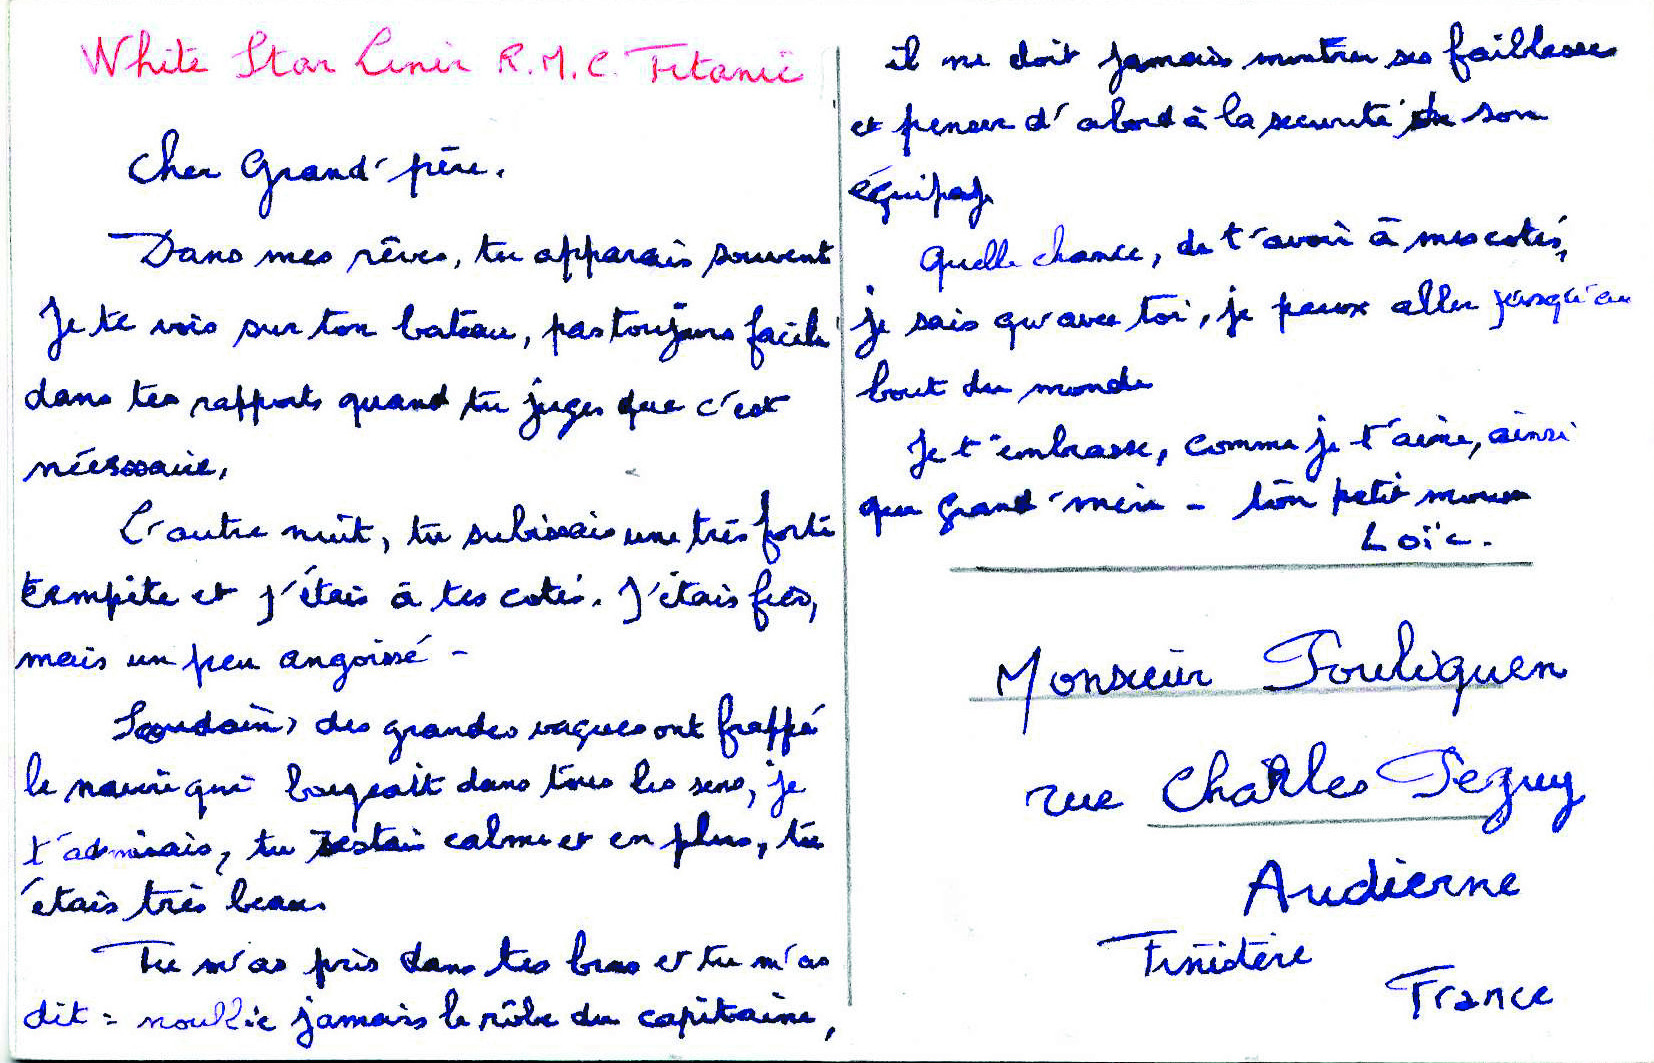 White Star Linir R.M.C. Titanic
Cher Grand'père.
Dans mes rêves, tu apparais souvent
Je te vois sur ton bateau, pas toujours facile
dans tes rapports quand tu juges que c'est
nécessaire,
L'autre nuit, tu subissais une très forte
tempête et j'étais à tes cotés. J'étais fier,
mais un peu angoissé -
Soudain, des grandes vagues ont frappé
le navire qui bougeait dans tous les sens, je
t'admirais, tu restais calme et en plus, tu
étais très beau.
Tu m'as pris dans tes bras et tu m'as
dit = noublie jamais le rôle du capitaine,
il ne doit jamais montrer ses faiblesses
et penser d'abord à la securité de son
équipage
Quelle chance, de t'avoir à mes cotés,
je sais qu'avec toi, je peux aller jusqu'au
bout du monde
Je t'embrasse, comme je t'aime, ainsi
que grand'mère - ton petit mousse
Loïc.
Monsieur Pouliquen
rue Charles Peguy
Audierne
Finistère
France